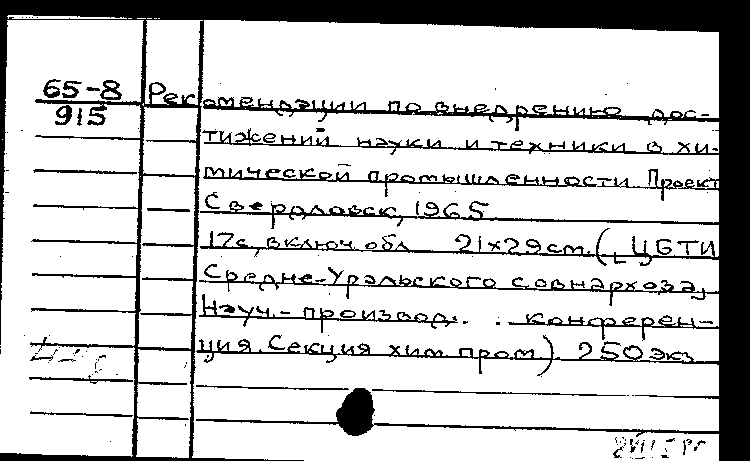 65-8 Рекомендации по внедрению дос-
915
тижений науки и техники в хи-
мической промышленности Проект
Свердловск, 1965
17с, включ обл 21х29см. (ЦБТИ
Средне-Уральского совнархоза,
Науч.-производ. . конферен-
ция. Секция хим пром). 250 экз